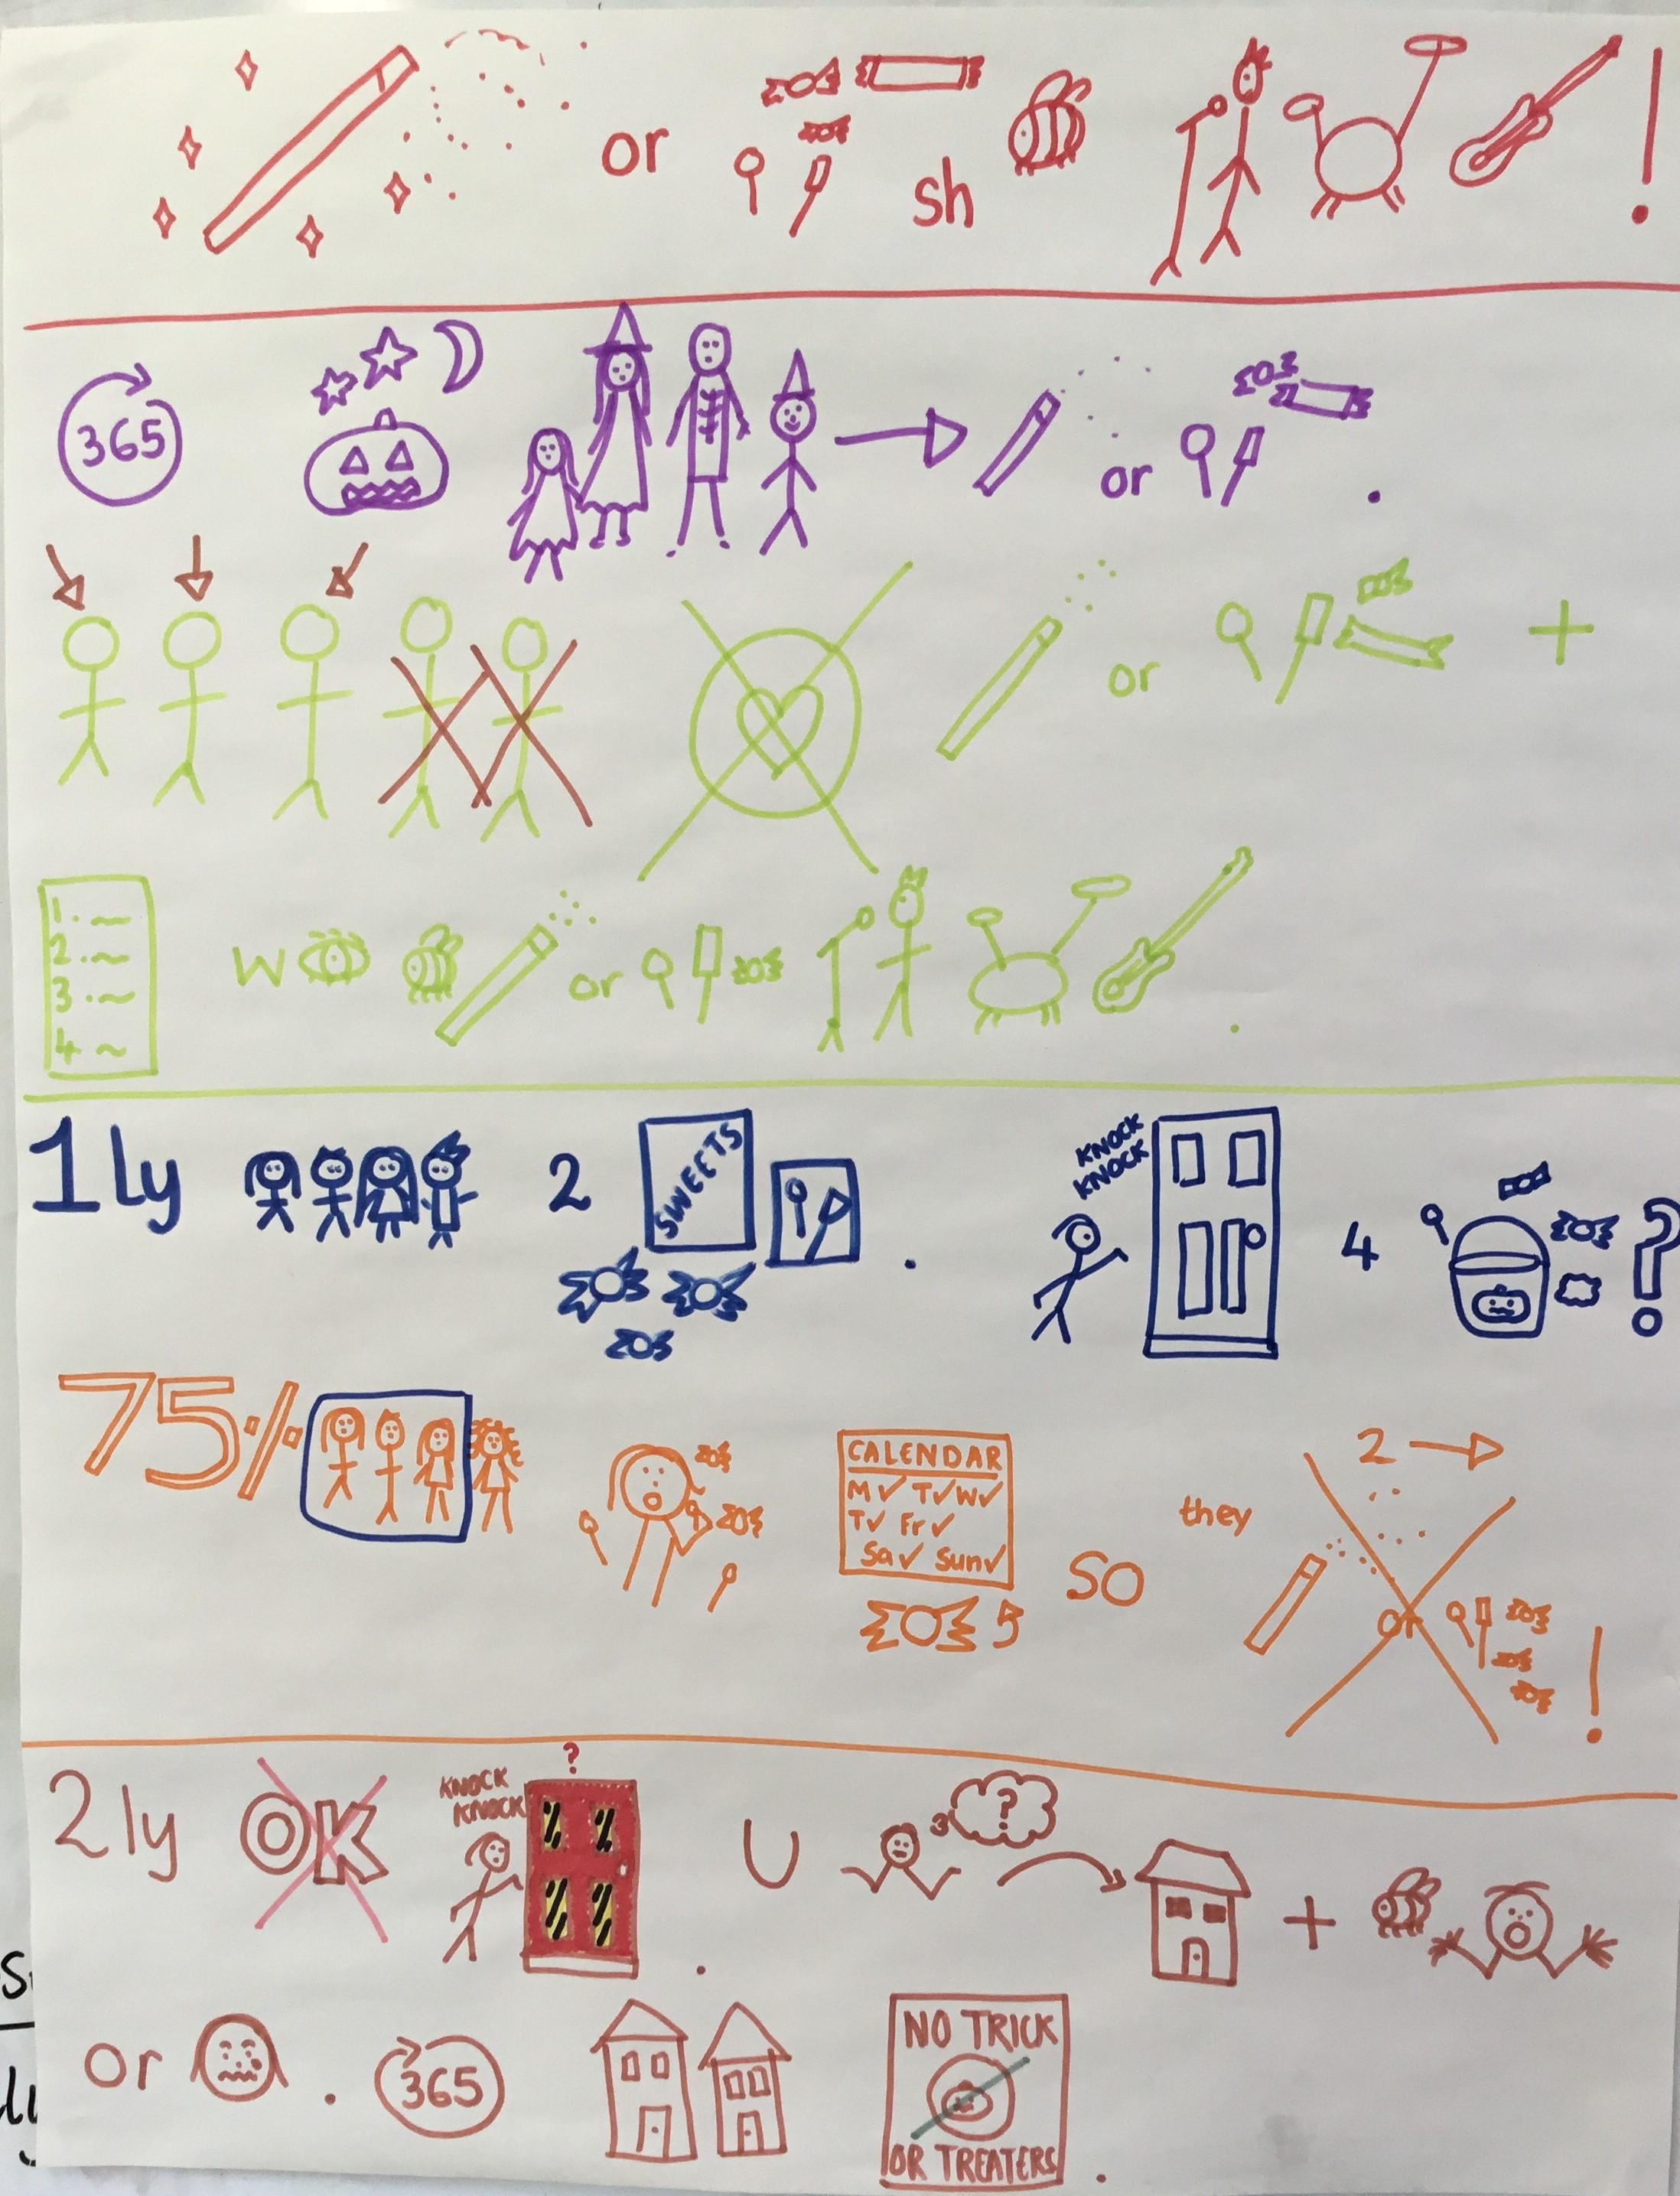 or sh !
365 or .
or +
1. 2. 3. 4
W or .
1ly 2 SWEETS . KNOCK KNOCK 4 ?
75% CALENDAR
M T W
T Fr
Sa Sun
so they 2 or !
2ly OK KNOCK KNOCK ? . U ? +
or . 365 NO TRICK
OR TREATERS .